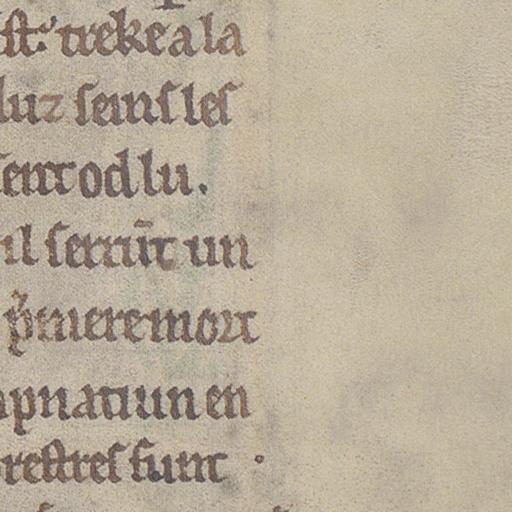 st. treke a la
luz seinz les
ent od lu.
il serrunt un
p̃mere mort
apnatiun en
restres sunt .